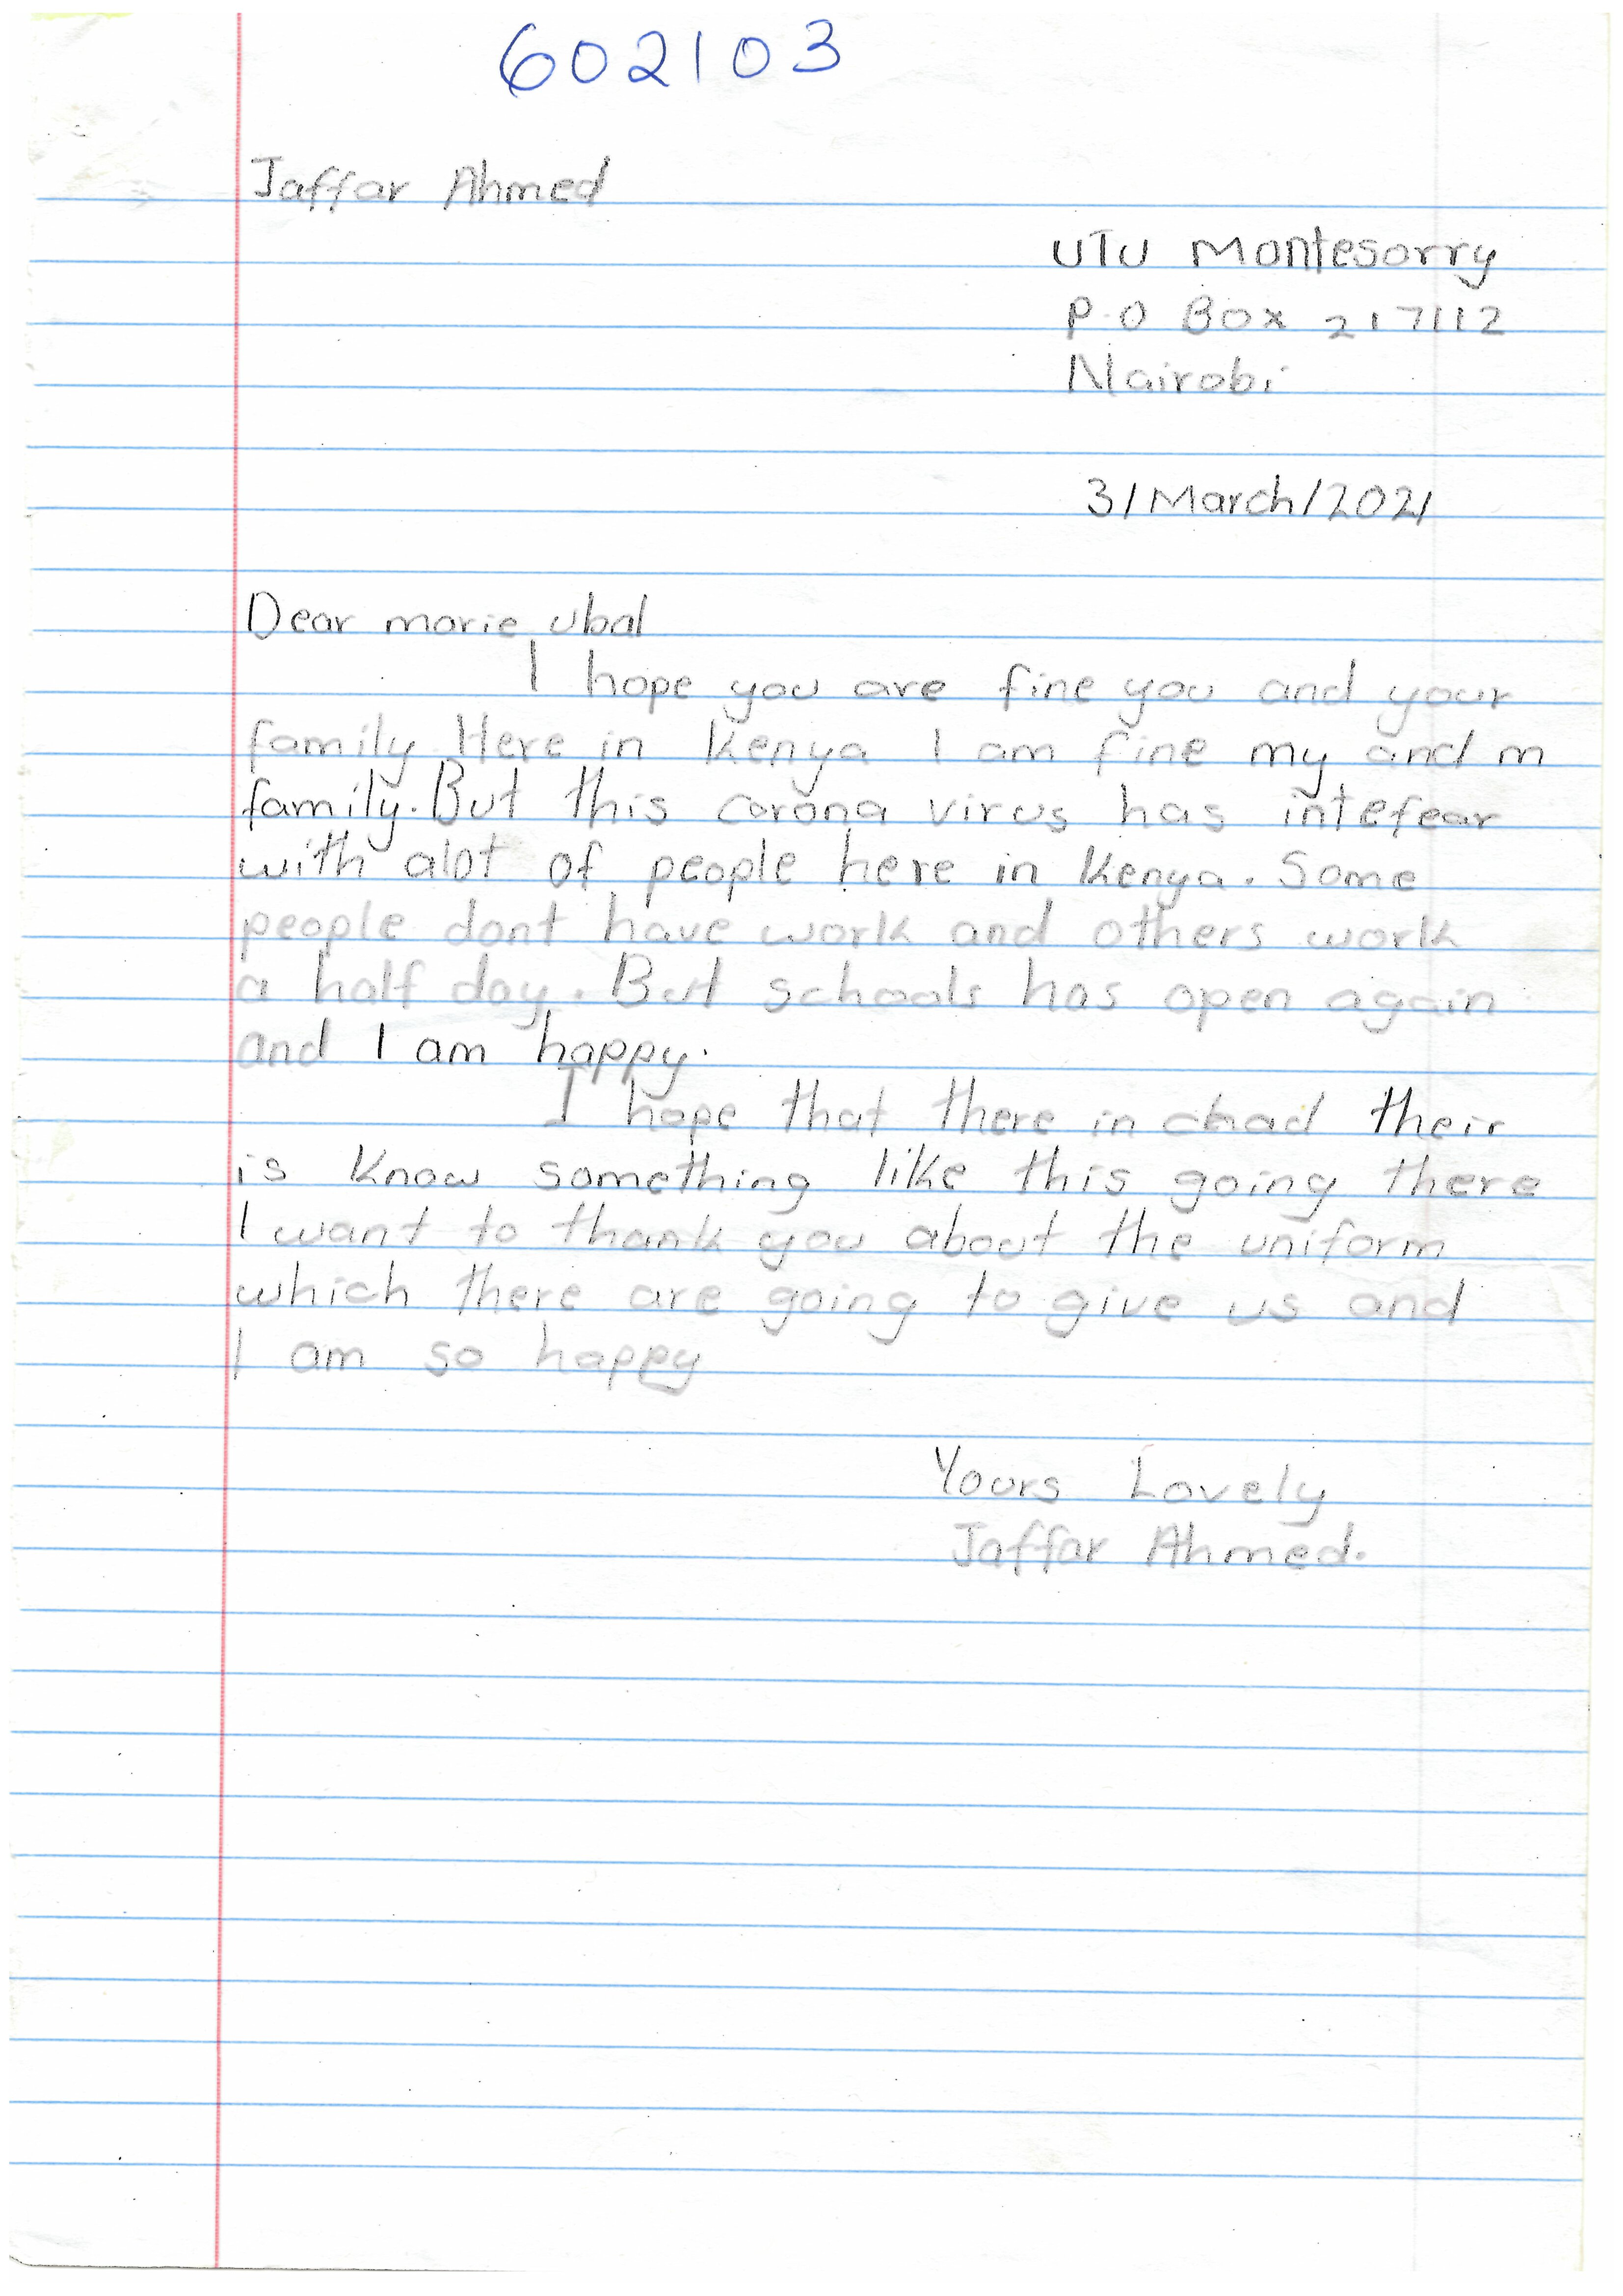 602103
Jaffar Ahmed
UTU Montesorry
P.O Box 217112
Nairobi
31March/2021
Dear marie ubal
I hope you are fine you and your
family Here in Kenya I am fine my and m
family. But this corona virus has intefear
with alot of people here in Kenya. Some
people dont have work and others work
a half day. But schools has open again
and I am happy.
I hope that there in chad their
is know something like this going there
I want to thank you about the uniform
which there are going to give us and
I am so happy
Yours Lovely
Jaffar Ahmed.